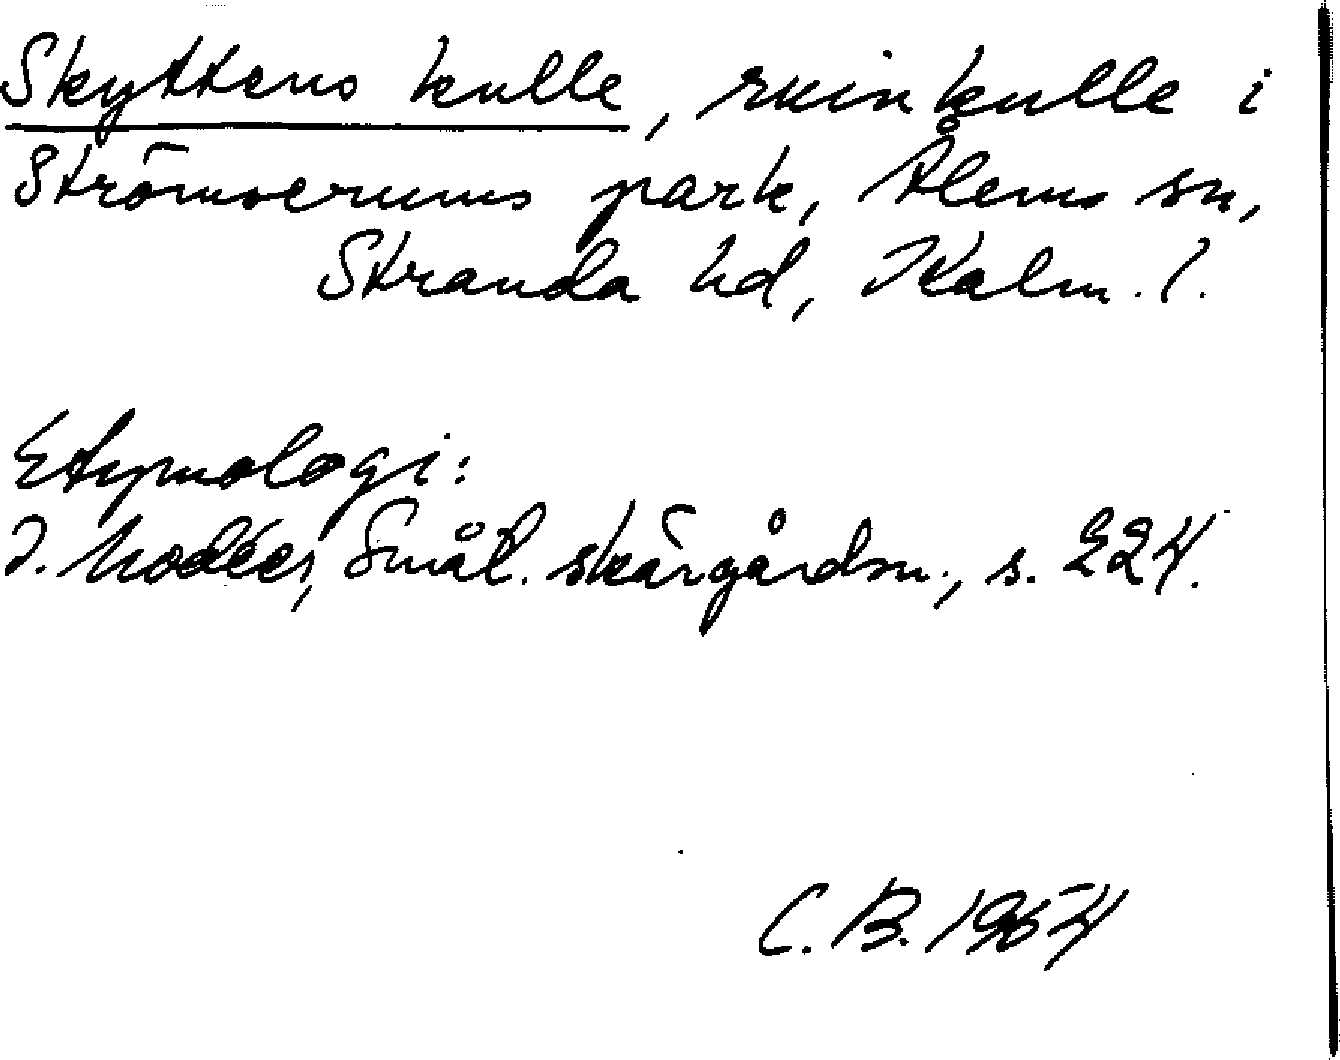 Skyttens kulle, ruinkulle i
Strömserums park, Ålems sn,
Stranda hd, Kalm. l.
Etymologi:
I. Modéer, Smål. skärgårdsn., s. 224.
C. B. 1964